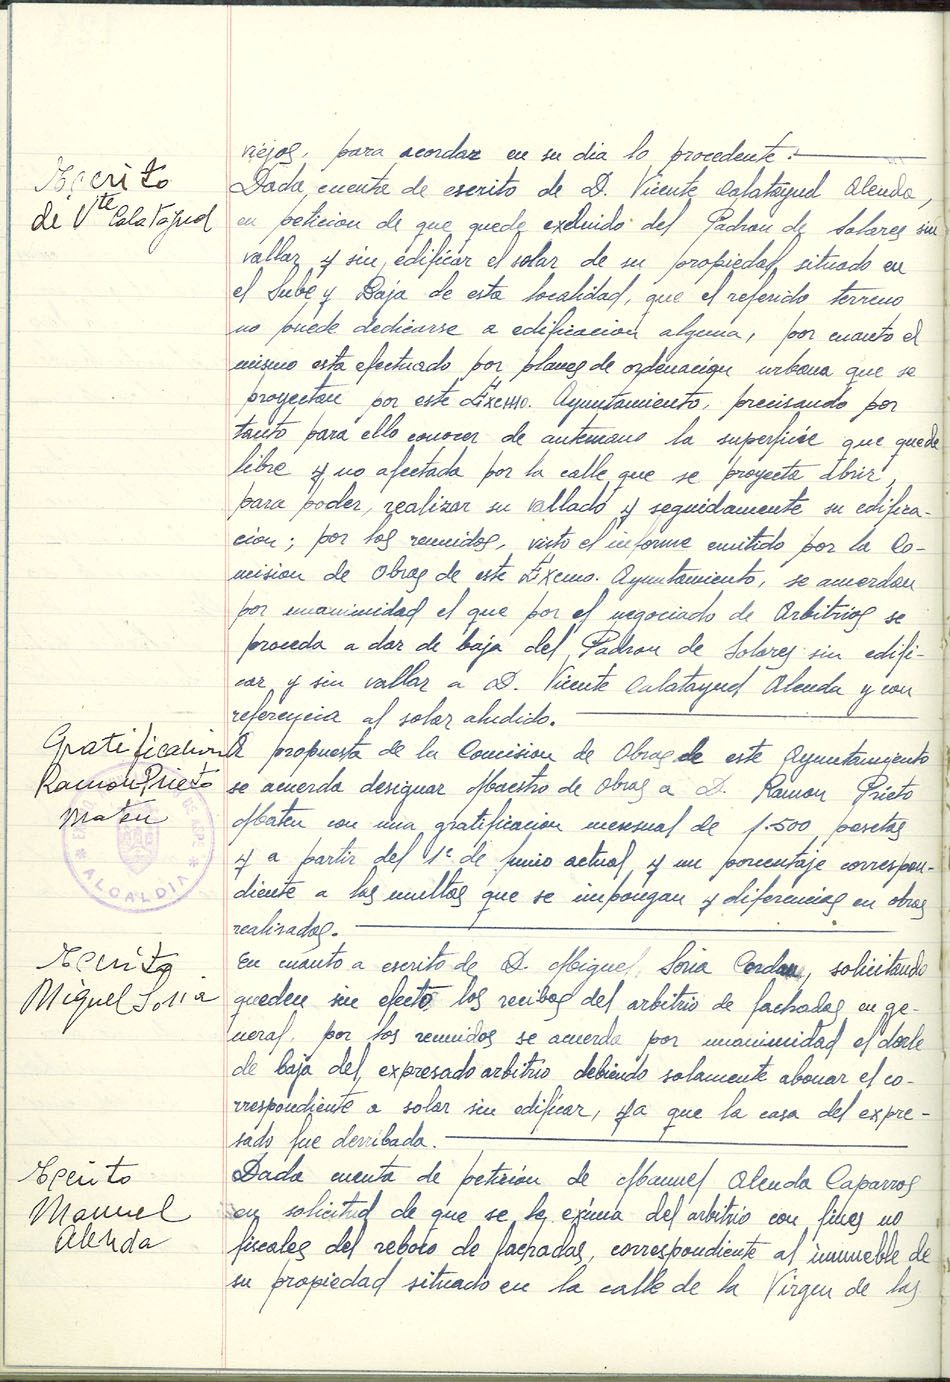 viejos, para acordar en su dia lo procedente.
Escrito
de Vte Calatayud
Dada cuenta de escrito de D. Vicente Calatayud Alenda,
en peticion de que quede excluido del Padron de Solares sin
vallar y sin edificar el solar de su propiedad situado en
el Sube y Baja de esta localidad, que el referido terreno
no puede dedicarse a edificacion alguna, por cuanto el
mismo esta efectuado por planes de ordenación urbana que se
proyectan por este Excmo. Ayuntamiento, precisando por
tanto para ello conocer de antemano la superficie que quede
libre y no afectada por la calle que se proyecta abrir,
para poder, realizar su vallado y seguidamente su edifica-
cion; por los reunidos, visto el informe emitido por la Co-
mision de Obras de este Excmo. Ayuntamiento, se acuerdan
por unanimidad el que por el negociado de Arbitrios se
proceda a dar de baja del Padron de Solares sin edifi-
car y sin vallar a D. Vicente Calatayud Alenda y con
referencia al solar aludido.
Gratificacion
Ramon Prieto
Mateu
A propuesta de la Comision de Obras de este Ayuntamiento
se acuerda designar Maestro de Obras a D. Ramon Prieto
Mateu con una gratificacion mensual de 1.500 pesetas
y a partir del 1º de Junio actual, y un porcentaje correspon-
diente a las multas que se impongan y diferencias en obras
realizadas.
ALCALDIA
Escrito
Miguel Soria
En cuanto a escrito de D. Miguel Soria Cerdan, solicitando
queden sin efecto los recibos del arbitrio de fachadas en ge-
neral, por los reunidos se acuerda por unanimidad el darle
de baja del expresado arbitrio debiendo solamente abonar el co-
rrespondiente a solar sin edificar, ya que la casa del expre-
sado fue derribada.
Escrito
Manuel
Alenda
Dada cuenta de peticion de Manuel Alenda Caparros
en solicitud de que se le exima del arbitrio con fines no
fiscales del reboco de fachadas, correspondiente al inmueble de
su propiedad situado en la calle de la Virgen de las